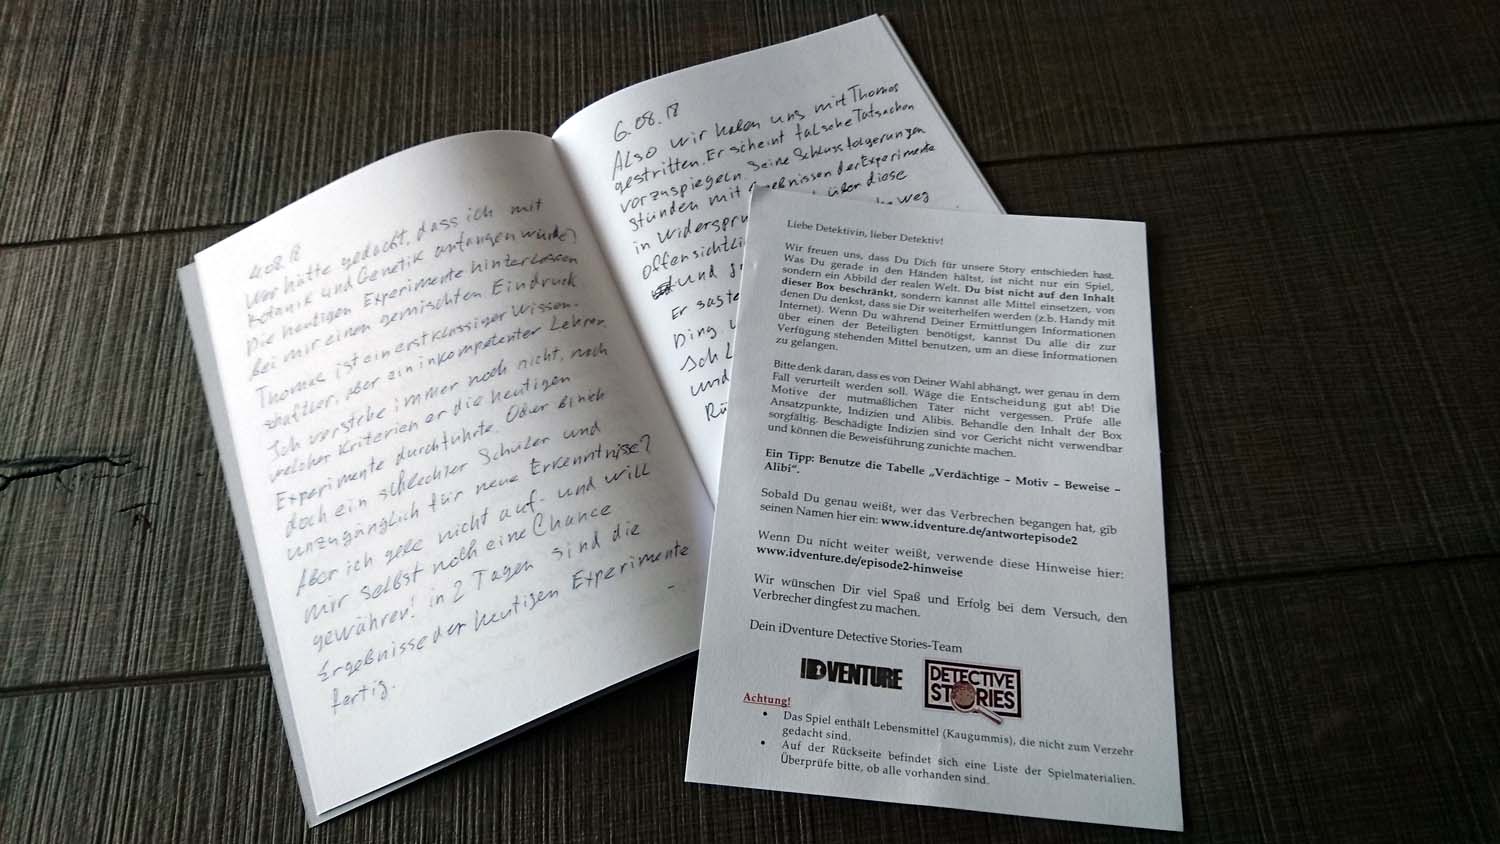 4.08.18
Wer hätte gedacht, dass ich mit
Botanik und Genetik anfangen würde?
Die heutigen Experimente hinterlassen
bei mir einen gemischten Eindruck.
Thomas ist ein erstklassiger Wissen-
schaftler, aber ein inkompetenter Lehrer.
Ich verstehe immer noch nicht, nach
welcher Kriterien er die heutigen
Experimente durchführte. Oder bin ich
doch ein schlechter Schüler und
unzugänglich für neue Erkenntnisse?
Aber ich gebe nicht auf und will
mir selbst noch eine Chance
gewähren! in 2 Tagen sind die
Ergebnisse der heutigen Experimente
fertig.
6.08.18
Also wir haben uns mit Thomas
gestritten. Er scheint falsche Tatsachen
vorzuspiegeln. Seine Schlussfolgerungen
stünden mit Ergebnissen der Experimente
in Widerspru über diese
offensichtli weg
und
Er sagte
Ding
Ich
und
Liebe Detektivin, lieber Detektiv!
Wir freuen uns, dass Du Dich für unsere Story entschieden hast.
Was Du gerade in den Händen hältst, ist nicht nur ein Spiel,
sondern ein Abbild der realen Welt. Du bist nicht auf den Inhalt
dieser Box beschränkt, sondern kannst alle Mittel einsetzen, von
denen Du denkst, dass sie Dir weiterhelfen werden (z.b. Handy mit
Internet). Wenn Du während Deiner Ermittlungen Informationen
über einen der Beteiligten benötigst, kannst Du alle dir zur
Verfügung stehenden Mittel benutzen, um an diese Informationen
zu gelangen.
Bitte denk daran, dass es von Deiner Wahl abhängt, wer genau in dem
Fall verurteilt werden soll. Wäge die Entscheidung gut ab! Die
Motive der mutmaßlichen Täter nicht vergessen. Prüfe alle
Ansatzpunkte, Indizien und Alibis. Behandle den Inhalt der Box
sorgfältig. Beschädigte Indizien sind vor Gericht nicht verwendbar
und können die Beweisführung zunichte machen.
Ein Tipp: Benutze die Tabelle „Verdächtige – Motiv – Beweise –
Alibi“.
Sobald Du genau weißt, wer das Verbrechen begangen hat, gib
seinen Namen hier ein: www.idventure.de/antwortepisode2
Wenn Du nicht weiter weißt, verwende diese Hinweise hier:
www.idventure.de/episode2-hinweise
Wir wünschen Dir viel Spaß und Erfolg bei dem Versuch, den
Verbrecher dingfest zu machen.
Dein iDventure Detective Stories-Team
IDVENTURE
DETECTIVE
STORIES
Achtung!
• Das Spiel enthält Lebensmittel (Kaugummis), die nicht zum Verzehr
gedacht sind.
• Auf der Rückseite befindet sich eine Liste der Spielmaterialien.
Überprüfe bitte, ob alle vorhanden sind.